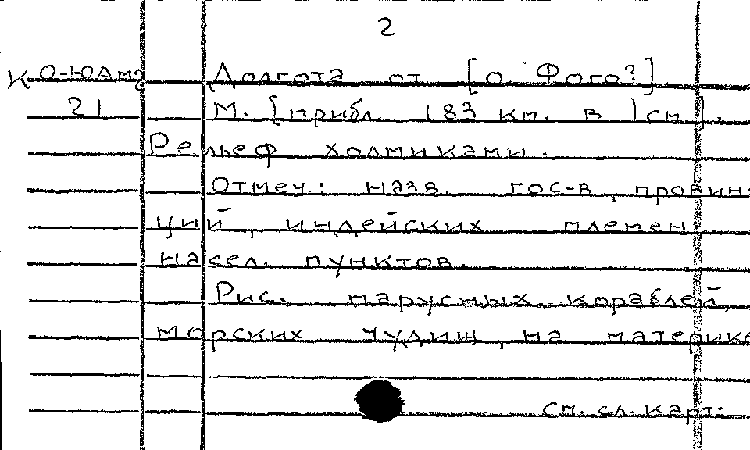 2
К О-ЮАм2 Долгота от [о. Фого?]
21 М. [прибл. 183 км. в 1 см].
Рельеф холмиками.
Отмеч.: назв. гос-в, провин-
ций, индейских племен,
насел. пунктов.
Рис. парусных кораблей,
морских чудищ, на материке
См. сл. карт.